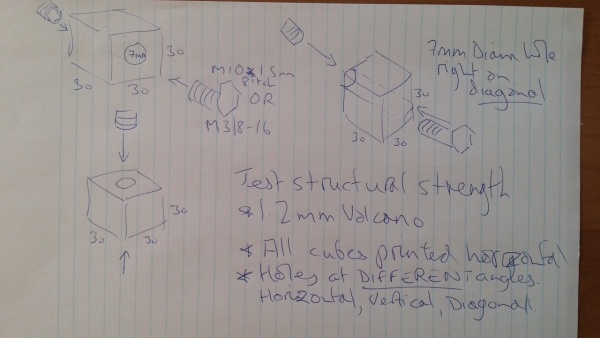 7mm
30
30
30
M10x1.5mm
pitch
OR
M3/8-16
30
30
30
7mm Diam hole
right on
diagonal
30
30
30
Test structural strength
* 1.2mm Volcano
* All cubes printed horizontal
* Holes at DIFFERENT angles.
Horizontal, Vertical, Diagonal.